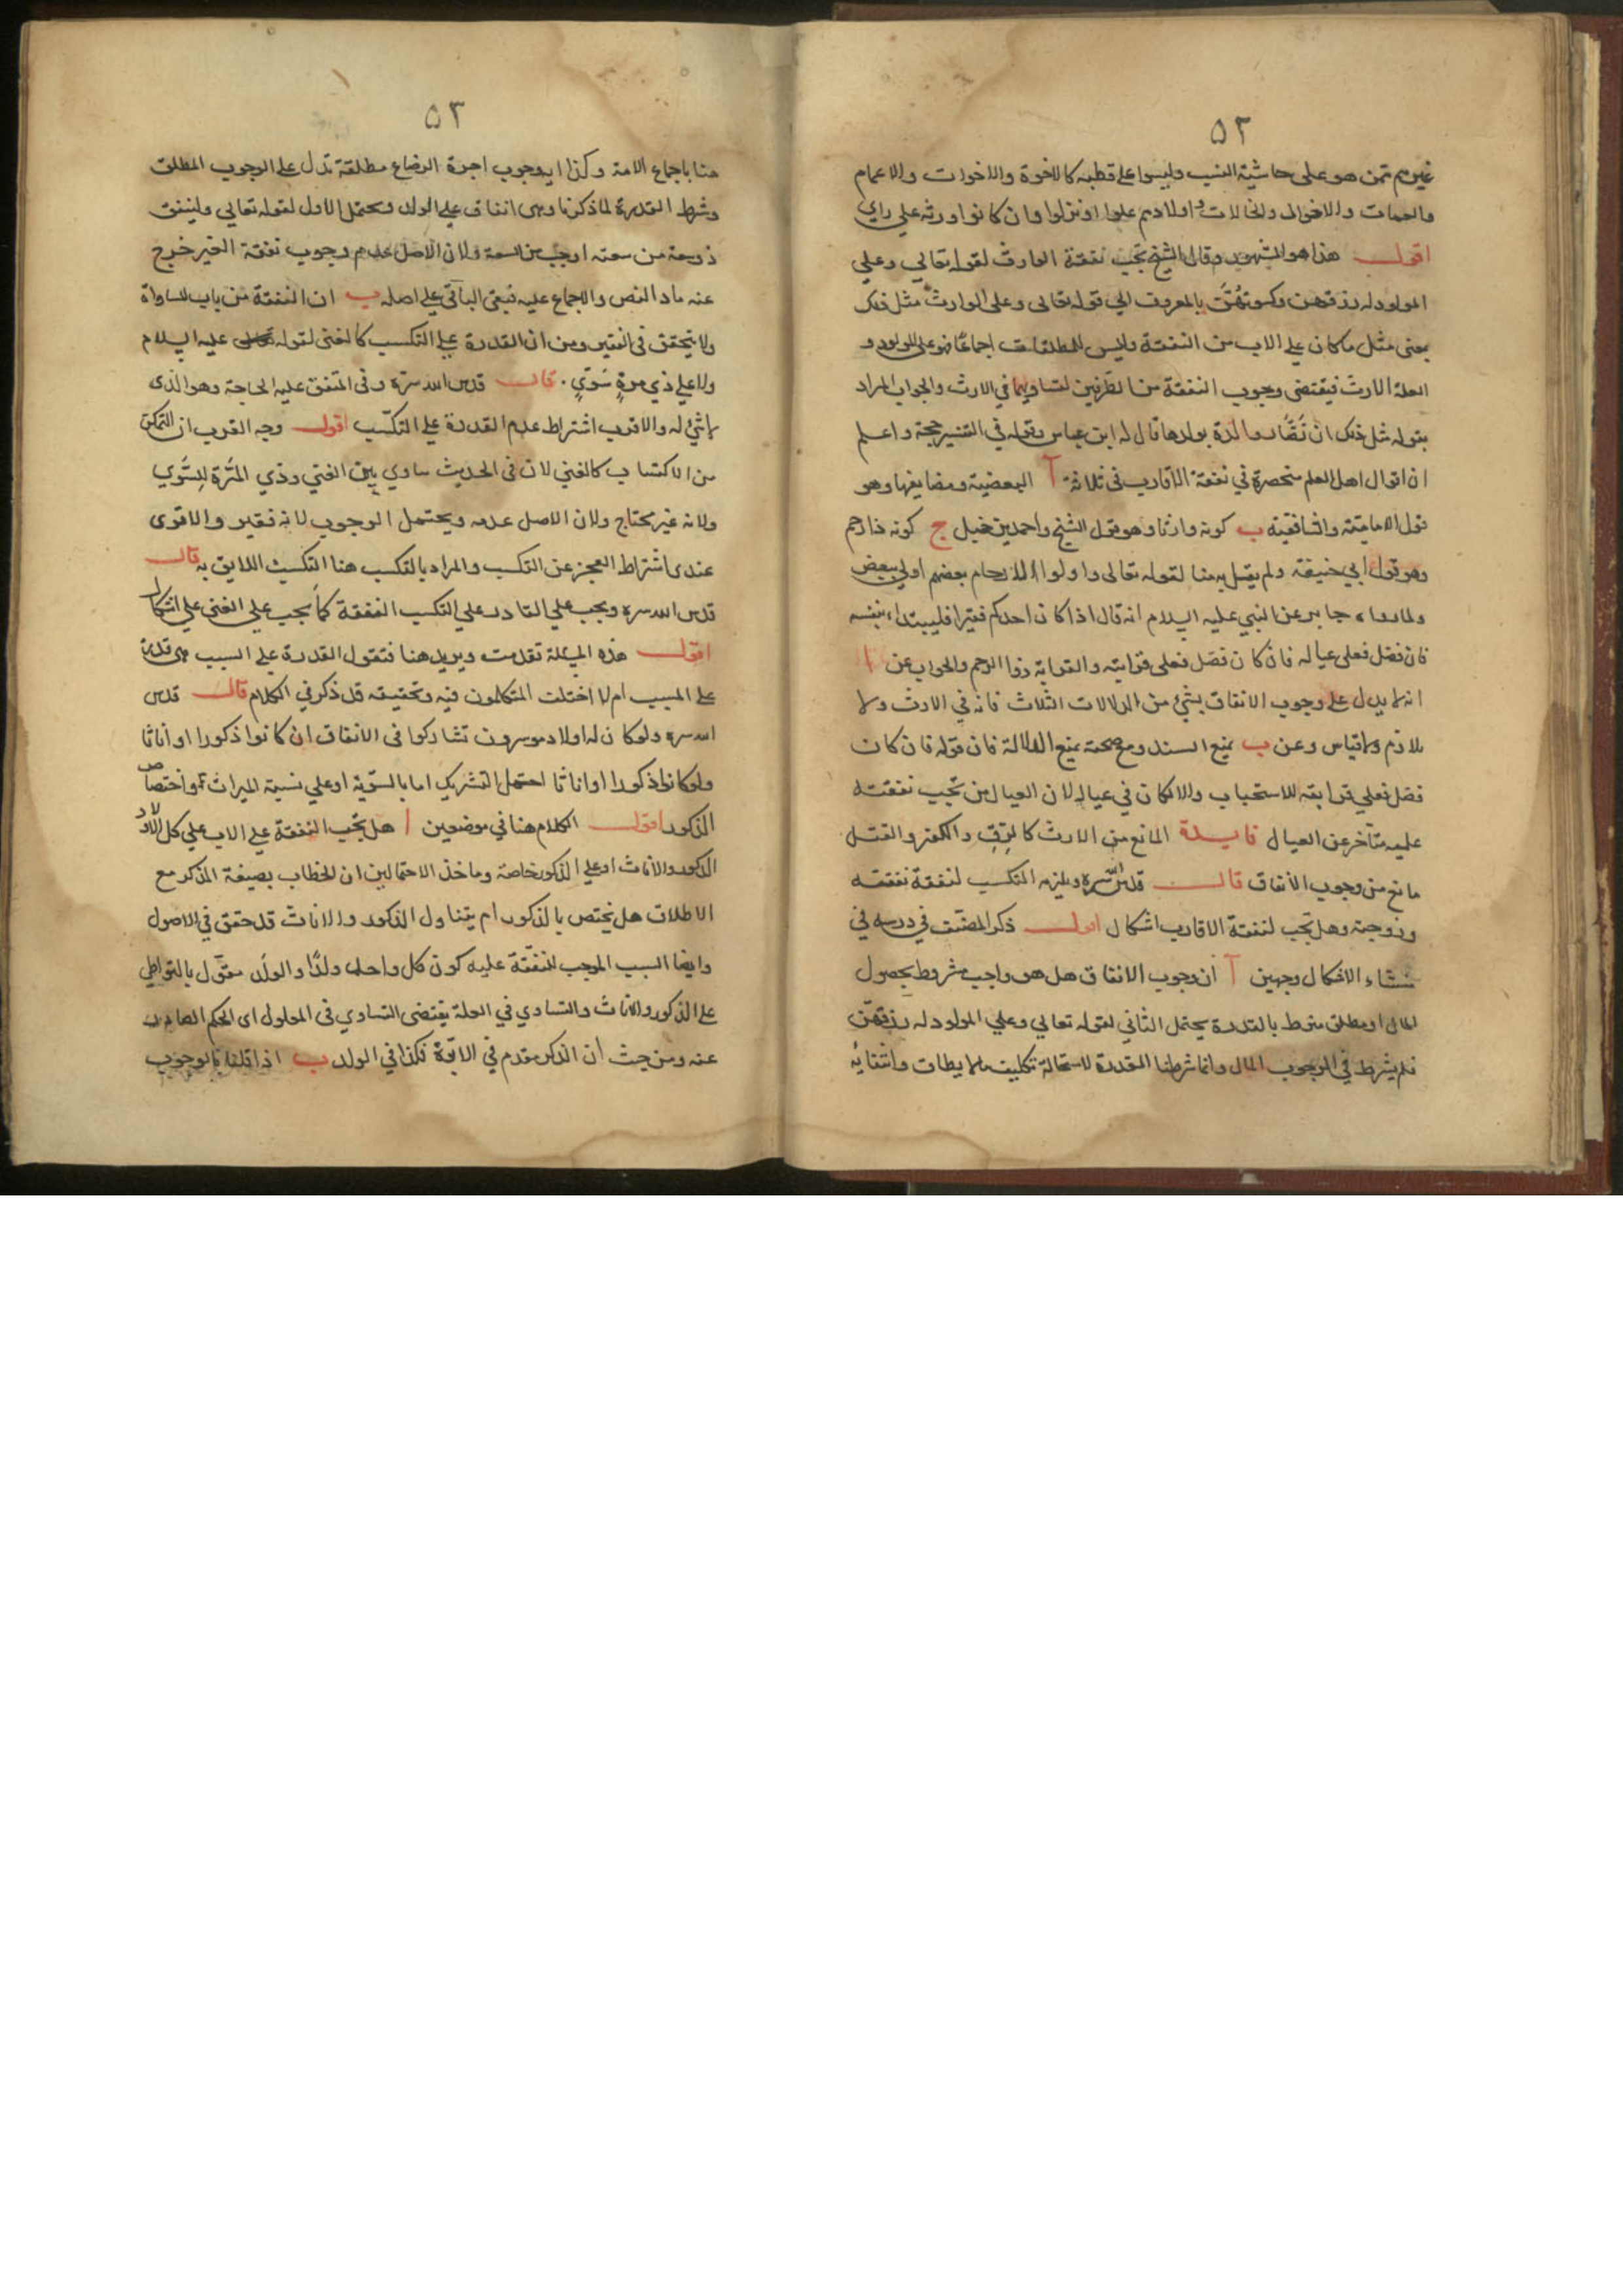 ٥٢
غيرهم ممن هو على حاشية النسب وليسوا على قطبه كالاخوة والاخوات والاعمام
والعمات والاخوال والخالات واولادهم علوا او نزلوا وان كانوا ورثة على راي
اقول هذا هو المشهور وقال الشيخ تجب نفقة الوارث لقوله تعالى وعلى
المولود له رزقهن وكسوتهن بالمعروف الى قوله تعالى وعلى الوارث مثل ذلك
بمعنى مثل ما كان على الاب من النفقة وليس للمطلقات اجماعا فهو على المولود و
العلة الارث فيقتضي وجوب النفقة من الطرفين لتساويهما في الارث والجواب المراد
بقوله مثل ذلك ان لا تضار والدة بولدها قال له ابن عباس وقوله في التفسير حجة واعلم
ان اقوال اهل العلم منحصرة في نفقة الاقارب في ثلاثة آ البعضية ومضايفها وهو
قول الامامية والشافعية ب كونه وارثا وهو قول الشيخ واحمد بن حنبل ج كونه ذا رحم
وهو قول ابي حنيفة ولم يقل به منا لقوله تعالى واولوا الارحام بعضهم اولى ببعض
ولما رواه جابر عن النبي عليه السلام انه قال اذا كان احدكم فقيرا فليبتدا بنفسه
فان فضل فعلى عياله فان كان فضل فعلى قرابته والقرابة ذوا الرحم والجواب عن ا
انه لا يدل على وجوب الانفاق بشئ من الدلالات الثلاث فانه في الارث ولا
تلازم ولا قياس وعن ب بمنع السند ومع صحته بمنع الدلالة فان قوله فان كان
فضل فعلى قرابته للاستحباب والا لكان في عياله لان العيال من تجب نفقته
عليه متأخر عن العيال فايدة المانع من الارث كالرق والكفر والقتل
مانع من وجوب الانفاق قال قدس الله سره ويلزم التكسب لنفقة نفسه
وزوجته وهل تجب لنفقة الاقارب اشكال اقول ذكر المصنف في درسه في
منشاء الاشكال وجهين آ ان وجوب الانفاق هل هو واجب مشروط بحصول
المال او مطلق مشروط بالقدرة يحتمل الثاني لقوله تعالى وعلى المولود له رزقهن
فلم يشرط في الوجوب المال وانما شرطنا القدرة لاستحالة تكليف ما لا يطاق وانتفائه
٥٣
هنا باجماع الامة وكذا ايه وجوب اجرة الرضاع مطلقة تدل على الوجوب المطلق
وشرط القدرة لما ذكرنا وهي انفاق على الولد ويحتمل الاول لقوله تعالى ولينفق
ذو سعة من سعته اوجب من السعة ولان الاصل عدم وجوب نفقة الغير خرج
عنه ما دل النص والاجماع عليه فبقى الباقي على اصله ب ان النفقة من باب المساواة
ولا يتحقق في الفقير ومن ان القدرة على التكسب كالغنى لقوله عليه السلام
ولا على ذي مرة سوي . قال قدس الله سره وفي المنفق عليه الحاجة وهو الذي
لا شئ له والاقرب اشتراط عدم القدرة على التكسب اقول وجه القرب ان التمكن
من الاكتساب كالغني لان في الحديث ساوي بين الغني وذي المرة السوي
ولانه غير محتاج ولان الاصل عدمه ويحتمل الوجوب لانه فقير والاقوى
عندى اشتراط العجز عن التكسب والمراد بالتكسب هنا التكسب اللايق به قال
قدس الله سره ويجب على القادر على التكسب النفقة كما يجب على الغني على اشكال
اقول هذه المسئلة تقدمت ويزيد هنا فنقول القدرة على السبب هي قدرة
على المسبب ام لا اختلف المتكلمون فيه وتحقيقه قد ذكر في الكلام قال قدس
الله سره ولو كان له اولاد موسرون تشاركوا في الانفاق ان كانوا ذكورا او اناثا
ولو كانوا ذكورا واناثا احتمل التشريك اما بالسوية او على نسبة الميراث واختصاص
الذكور اقول الكلام هنا في موضعين ا هل تجب النفقة على الاب على كل الاولاد
الذكور والاناث او على الذكور خاصة وماخذ الاحتمالين ان الخطاب بصيغة المذكر مع
الاطلاق هل يختص بالذكور ام يتناول الذكور والاناث قد حقق في الاصول
وايضا السبب الموجب للنفقة عليه كون كل واحد ولدا والولد مقول بالتواطي
على الذكور والاناث والتساوي في العلة يقتضى التساوي في المعلول اى الحكم الصادر
عنه ومن حيث ان الذكر مقدم في الابوة فكذا في الولد ب اذا قلنا بالوجوب